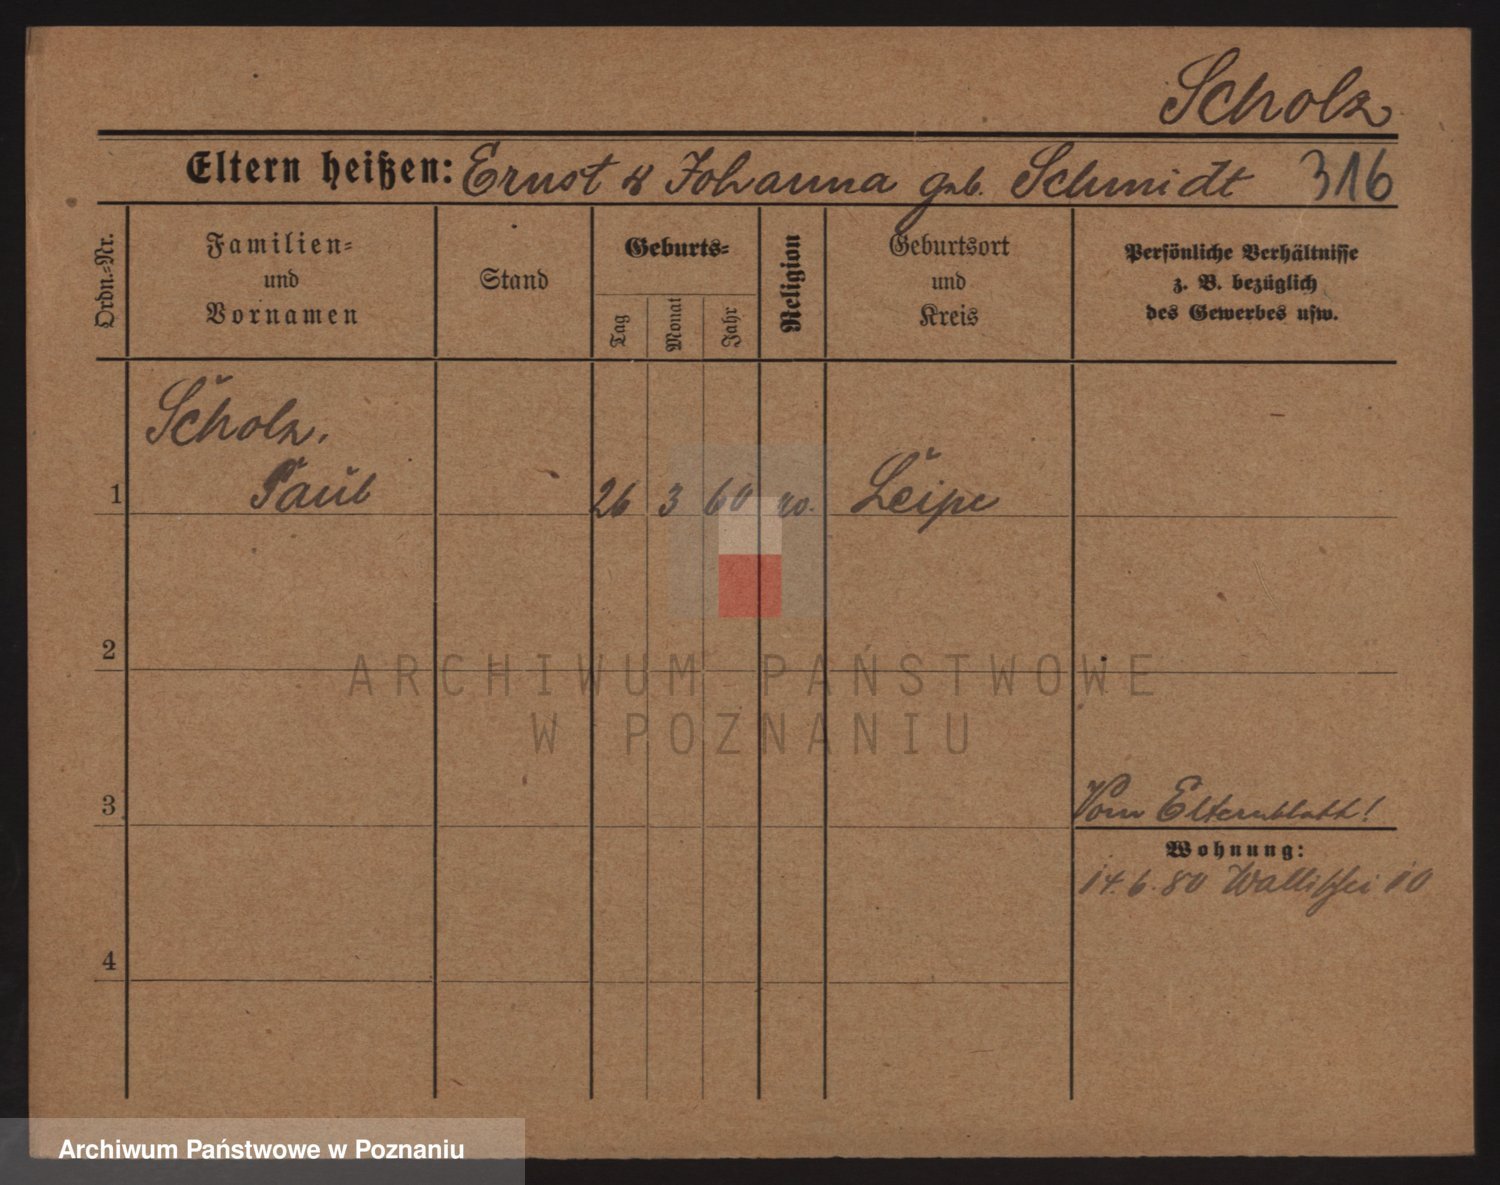 Scholz
Eltern heißen: Ernst & Johanna geb. Schmidt 316
Ordn.-Nr.
Familien-
und
Vornamen
Stand
Geburts-
Tag
Monat
Jahr
Religion
Geburtsort
und
Kreis
Persönliche Verhältnisse
z. B. bezüglich
des Gewerbes usw.
Scholz,
1 Paul 26 3 60 Leipe
2
ARCHIWUM PAŃSTWOWE
W POZNANIU
3 Vom Elternblatt!
Wohnung:
14.6.80 Wallischei 10
4
Archiwum Państwowe w Poznaniu